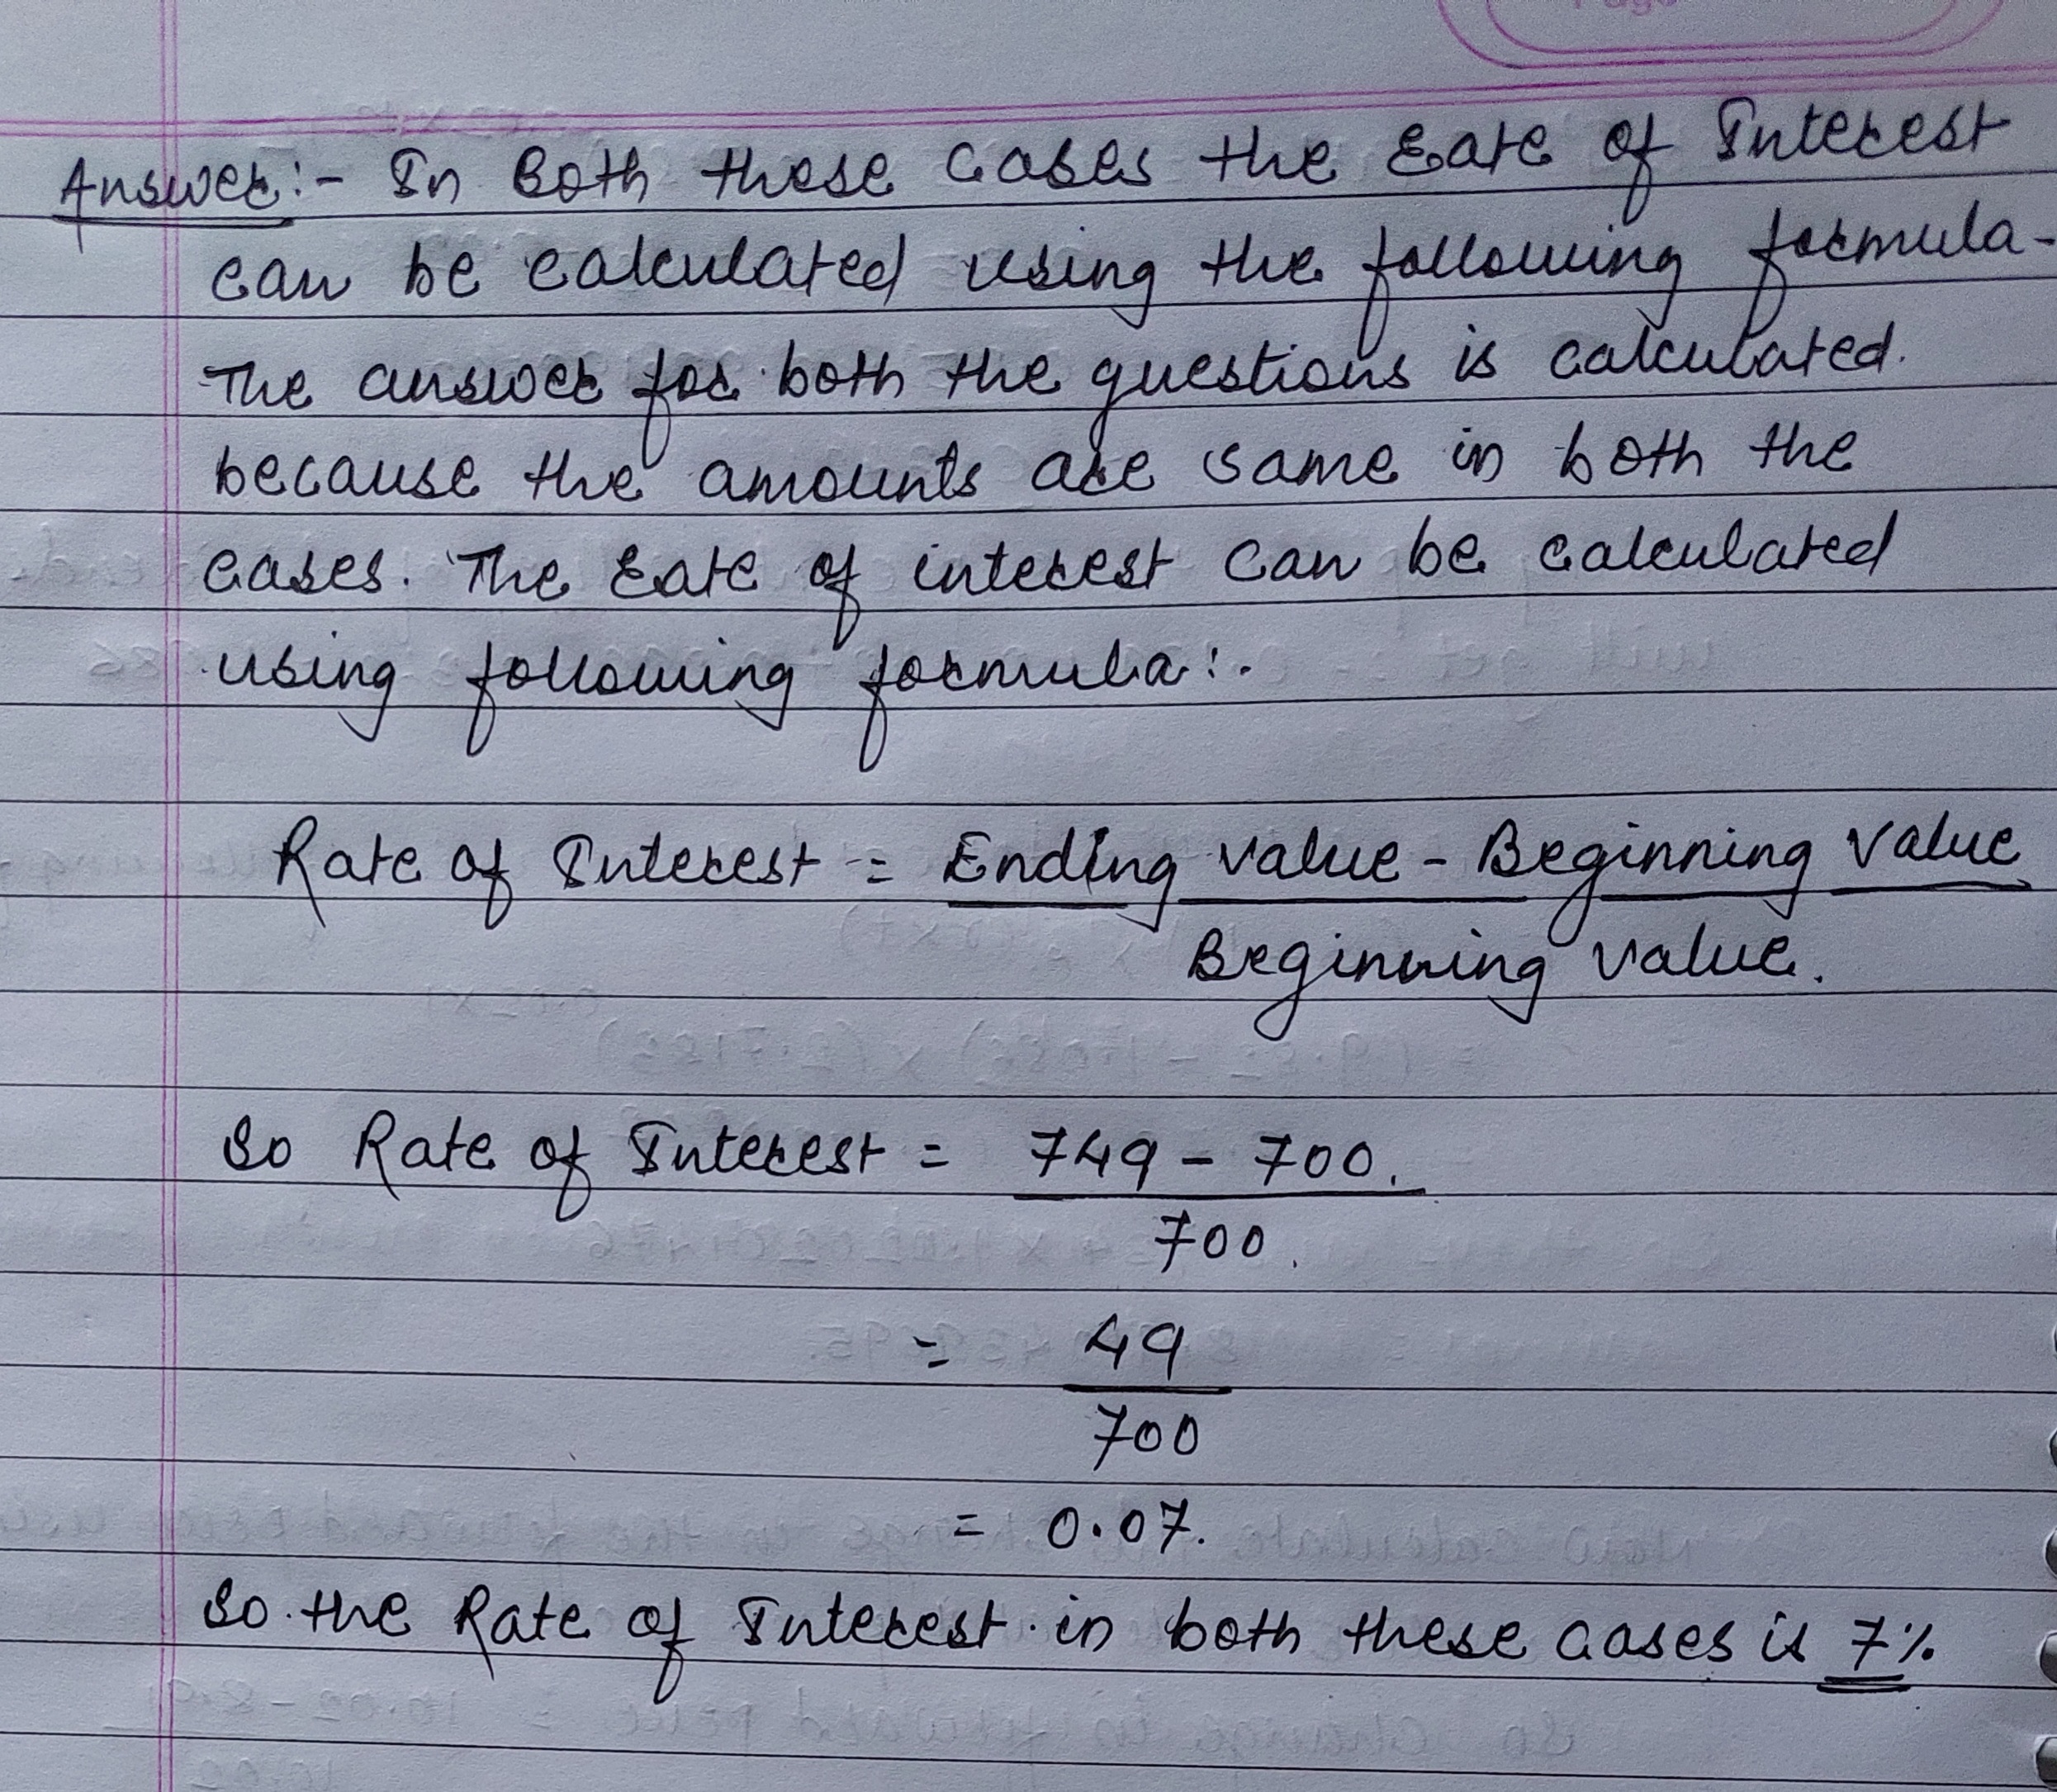 Page
Answer:- In Both these Cases the Rate of Interest
can be calculated using the following formula-
The answer for both the questions is calculated.
because the amounts are same in both the
cases. The Rate of interest can be calculated
using following formula:.
Rate of Interest = Ending value - Beginning value
Beginning value.
So Rate of Interest = 749 - 700.
700.
= 49
700
= 0.07.
So the Rate of Interest in both these cases is 7%